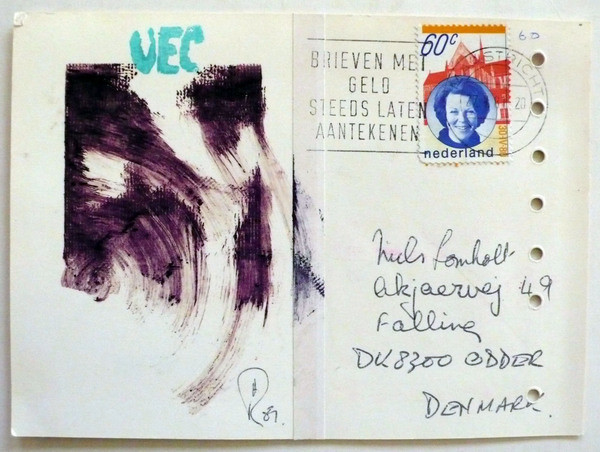 VEC
60
60c
BRIEVEN MET
GELD
STEEDS LATEN
AANTEKENEN
STRICHT
20
30/IV/80
nederland
Niels Lomholt
Akjaervej 49
Falling
DK 8300 ODDER
DENMARK.
R 81.